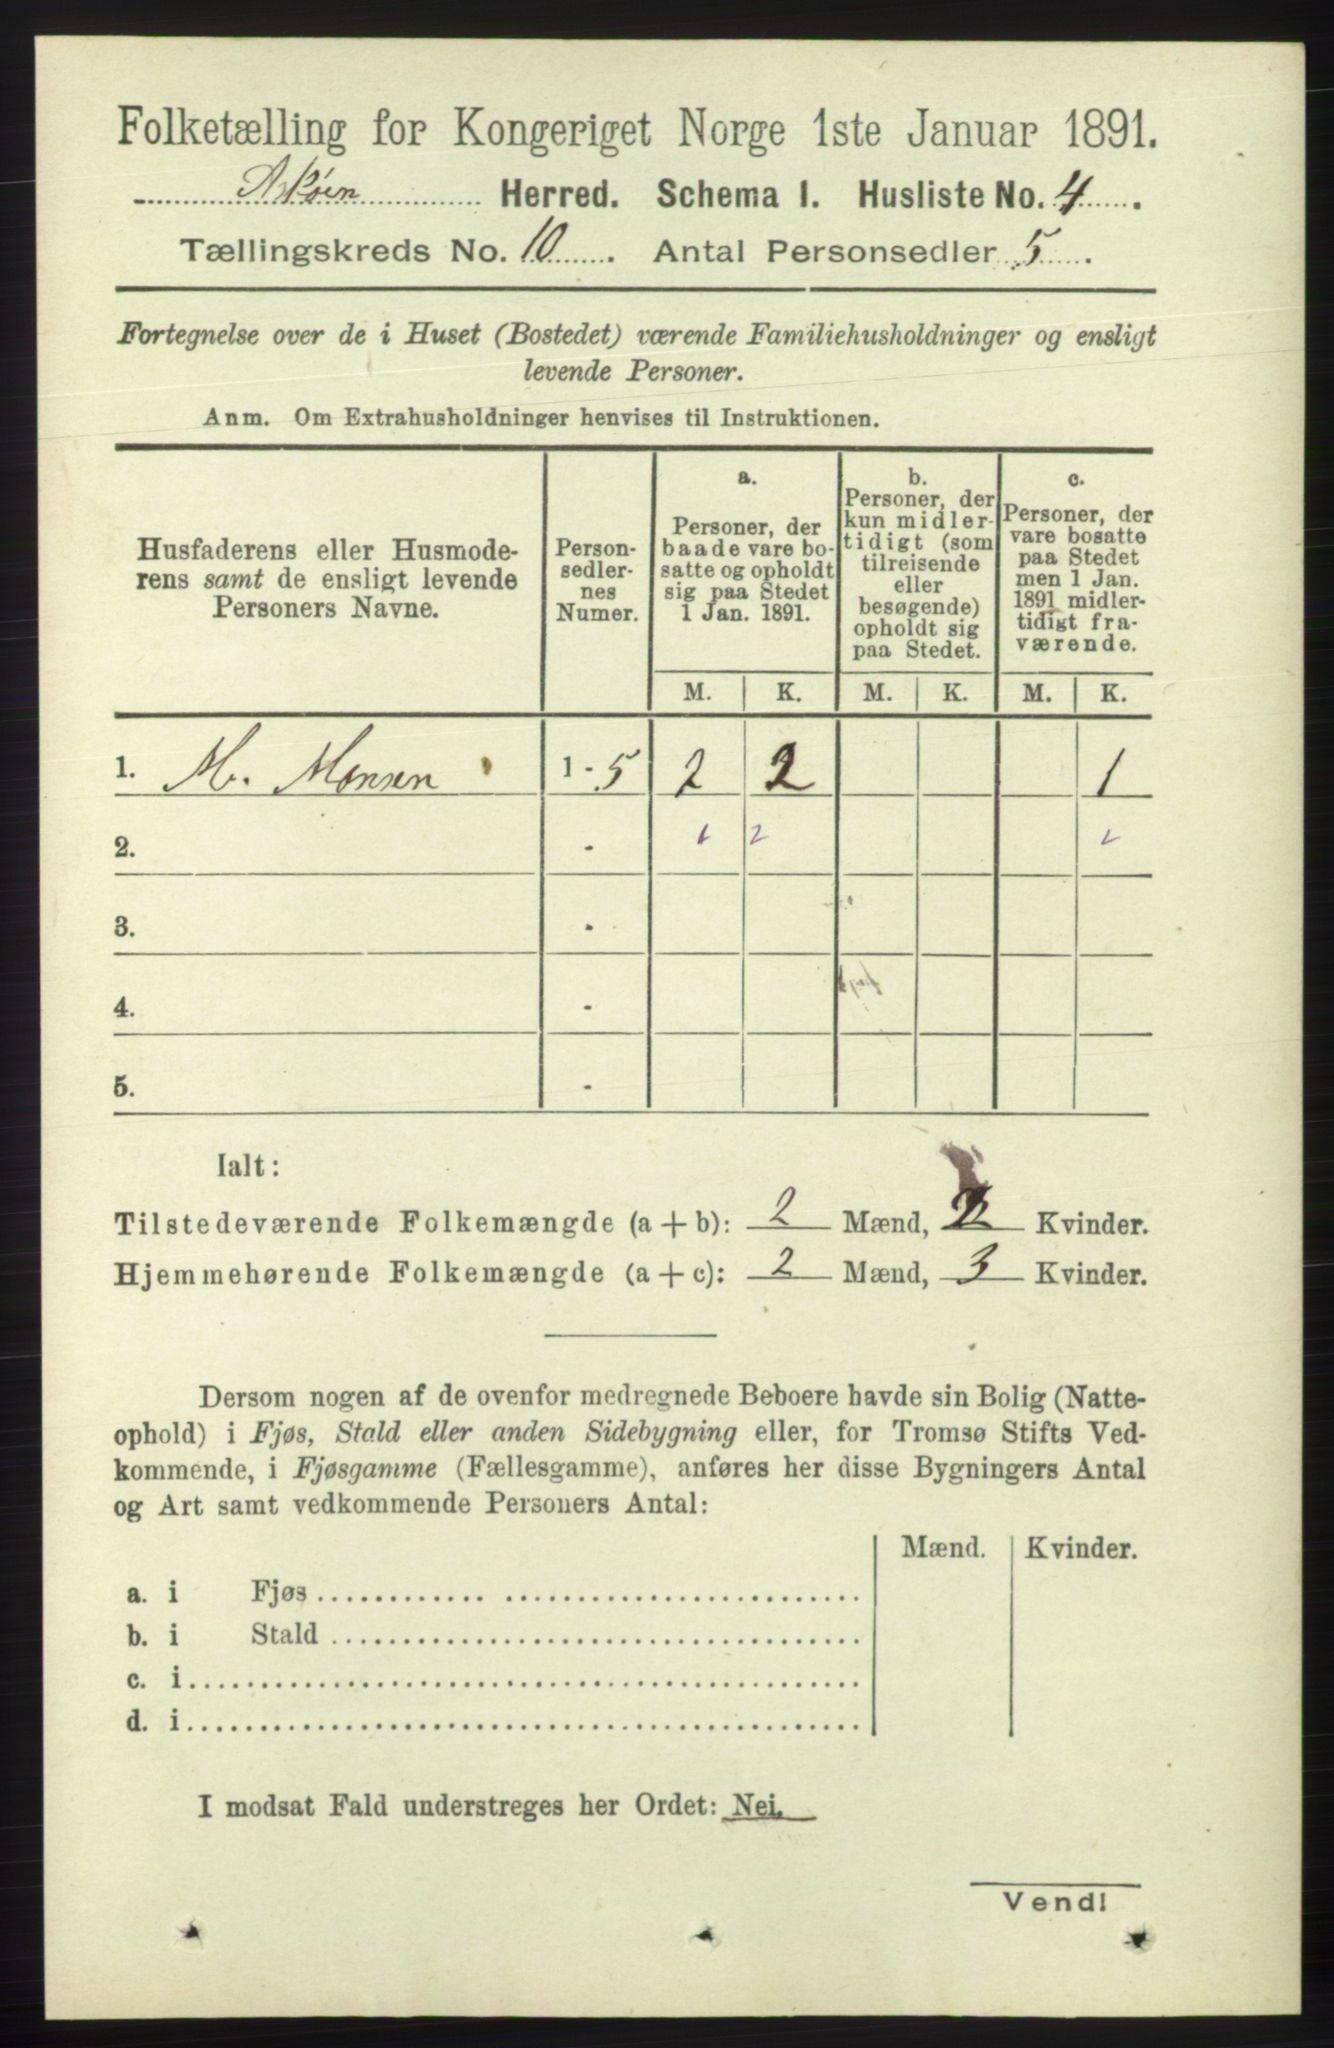 Folketælling for Kongeriget Norge 1ste Januar 1891.
Askøen Herred. Schema 1. Husliste No. 4.
Tællingskreds No. 10. Antal Personsedler 5.
Fortegnelse over de i Huset (Bostedet) værende Familiehusholdninger og ensligt
levende Personer.
Anm. Om Extrahusholdninger henvises til Instruktionen.
Husfaderens eller Husmode-
rens samt de ensligt levende
Personers Navne.
Person-
sedler-
nes
Numer.
a.
Personer, der
baade vare bo-
satte og opholdt
sig paa Stedet
1 Jan. 1891.
b.
Personer, der
kun midler-
tidigt (som
tilreisende
eller
besøgende)
opholdt sig
paa Stedet.
c.
Personer, der
vare bosatte
paa Stedet
men 1 Jan.
1891 midler-
tidigt fra-
værende.
M. K. M. K. M. K.
1. M. Monsen 1 - 5 2 2 1
2. -
3. -
4. -
5. -
Ialt:
Tilstedeværende Folkemængde (a + b): 2 Mænd, 2 Kvinder.
Hjemmehørende Folkemængde (a + c): 2 Mænd, 3 Kvinder.
Dersom nogen af de ovenfor medregnede Beboere havde sin Bolig (Natte-
ophold) i Fjøs, Stald eller anden Sidebygning eller, for Tromsø Stifts Ved-
kommende, i Fjøsgamme (Fællesgamme), anføres her disse Bygningers Antal
og Art samt vedkommende Personers Antal:
Mænd. Kvinder.
a. i Fjøs
b. i Stald
c. i
d. i
I modsat Fald understreges her Ordet: Nei.
Vend!